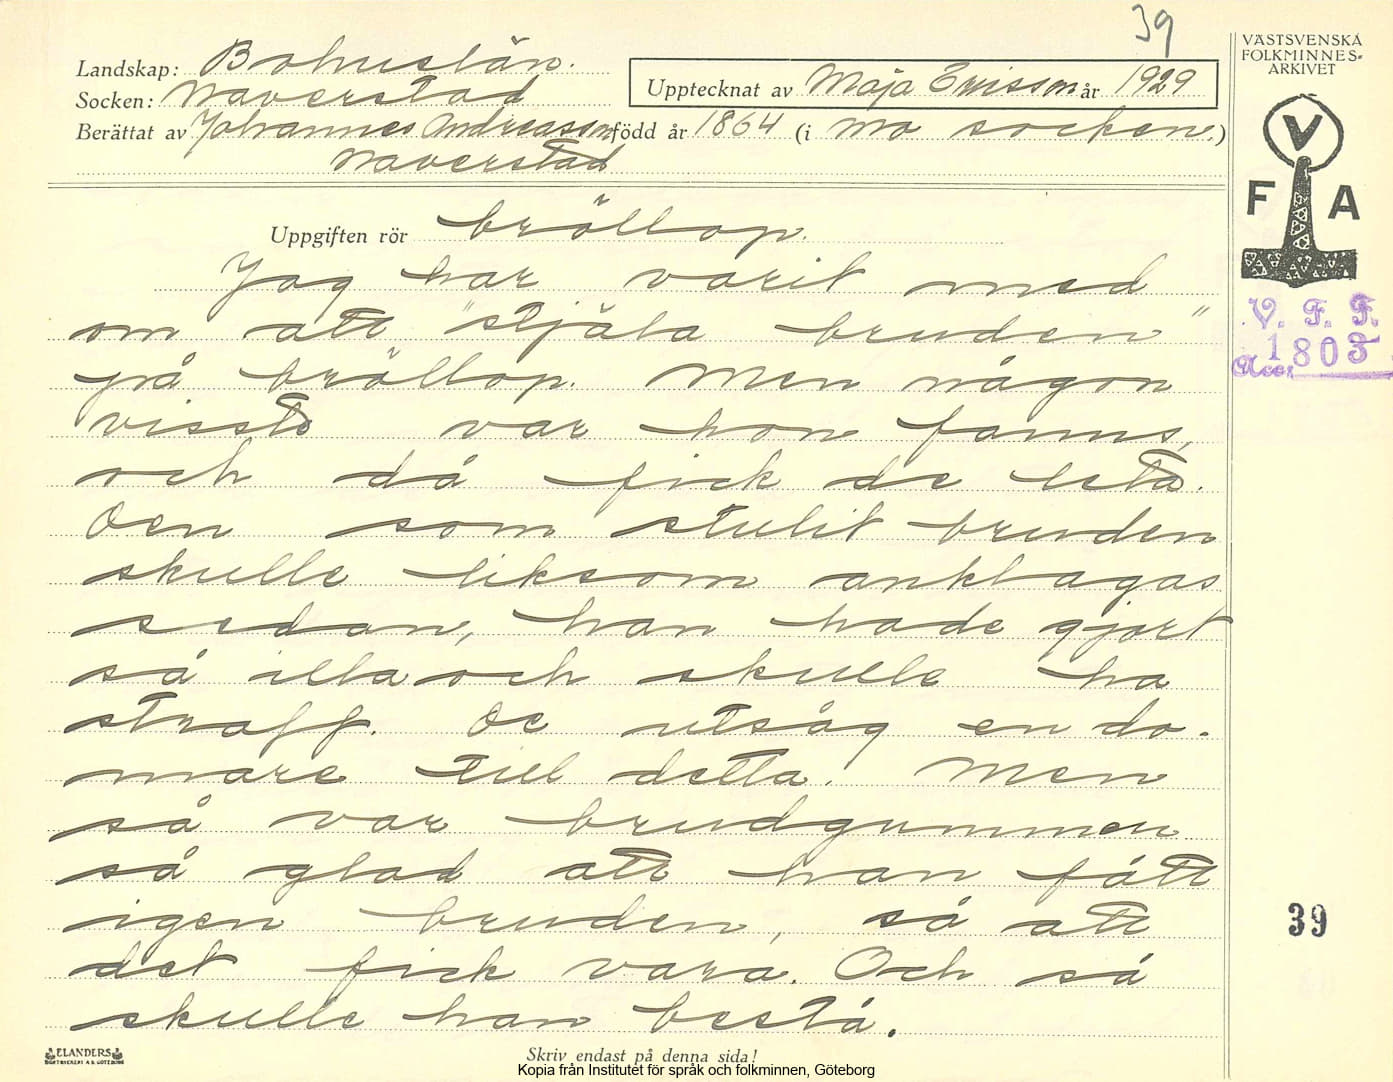 39
Landskap: Bohuslän.
Socken: Naverstad
Upptecknat av Maja Ericsson år 1929
Berättat av Johannes Andreasson född år 1864 (i Mo socken.)
Naverstad
Uppgiften rör bröllop.
Jag har varit med
om att "stjäla bruden"
på bröllop. Men någon
visste var hon fanns,
och då fick de leta.
Den som stulit bruden
skulle liksom anklagas
sedan, han hade gjort
så illa och skulle ha
straff. De utsåg en do-
mare till detta. Men
så var brudgummen
så glad att han fått
igen bruden, så att
det fick vara. Och så
skulle han bestå.
VÄSTSVENSKA
FOLKMINNES-
ARKIVET
V
F A
V. F. F.
Acc. 1803
39
ELANDERS
Skriv endast på denna sida!
Kopia från Institutet för språk och folkminnen, Göteborg